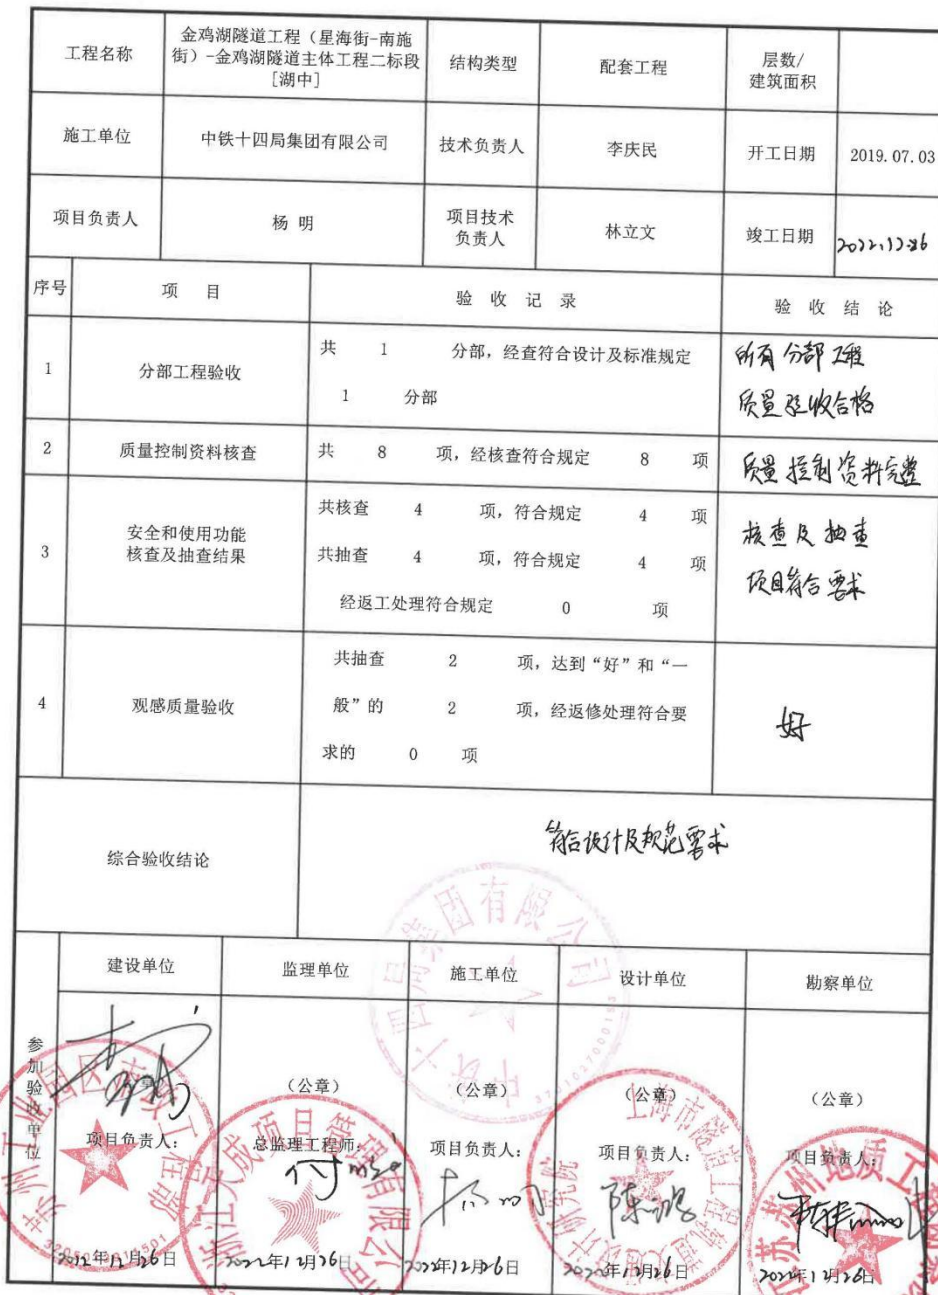 工程名称
金鸡湖隧道工程（星海街-南施
街）-金鸡湖隧道主体工程二标段
[湖中]
结构类型
配套工程
层数/
建筑面积
施工单位
中铁十四局集团有限公司
技术负责人
李庆民
开工日期
2019.07.03
项目负责人
杨 明
项目技术
负责人
林立文
竣工日期
2022.12.26
序号
项 目
验 收 记 录
验 收 结 论
1
分部工程验收
共 1 分部，经查符合设计及标准规定
1 分部
所有分部工程
质量验收合格
2
质量控制资料核查
共 8 项，经核查符合规定 8 项
质量控制资料完整
3
安全和使用功能
核查及抽查结果
共核查 4 项，符合规定 4 项
共抽查 4 项，符合规定 4 项
经返工处理符合规定 0 项
核查及抽查
项目符合要求
4
观感质量验收
共抽查 2 项，达到“好”和“一
般”的 2 项，经返修处理符合要
求的 0 项
好
综合验收结论
符合设计及规范要求
参加验收单位
建设单位
监理单位
施工单位
设计单位
勘察单位
（公章）
（公章）
（公章）
（公章）
项目负责人：
总监理工程师：
项目负责人：
项目负责人：
项目负责人：
2022年12月26日
2022年12月26日
2022年12月26日
2022年12月26日
2022年12月26日
中铁十四局集团有限公司
浙江大成项目管理有限公司